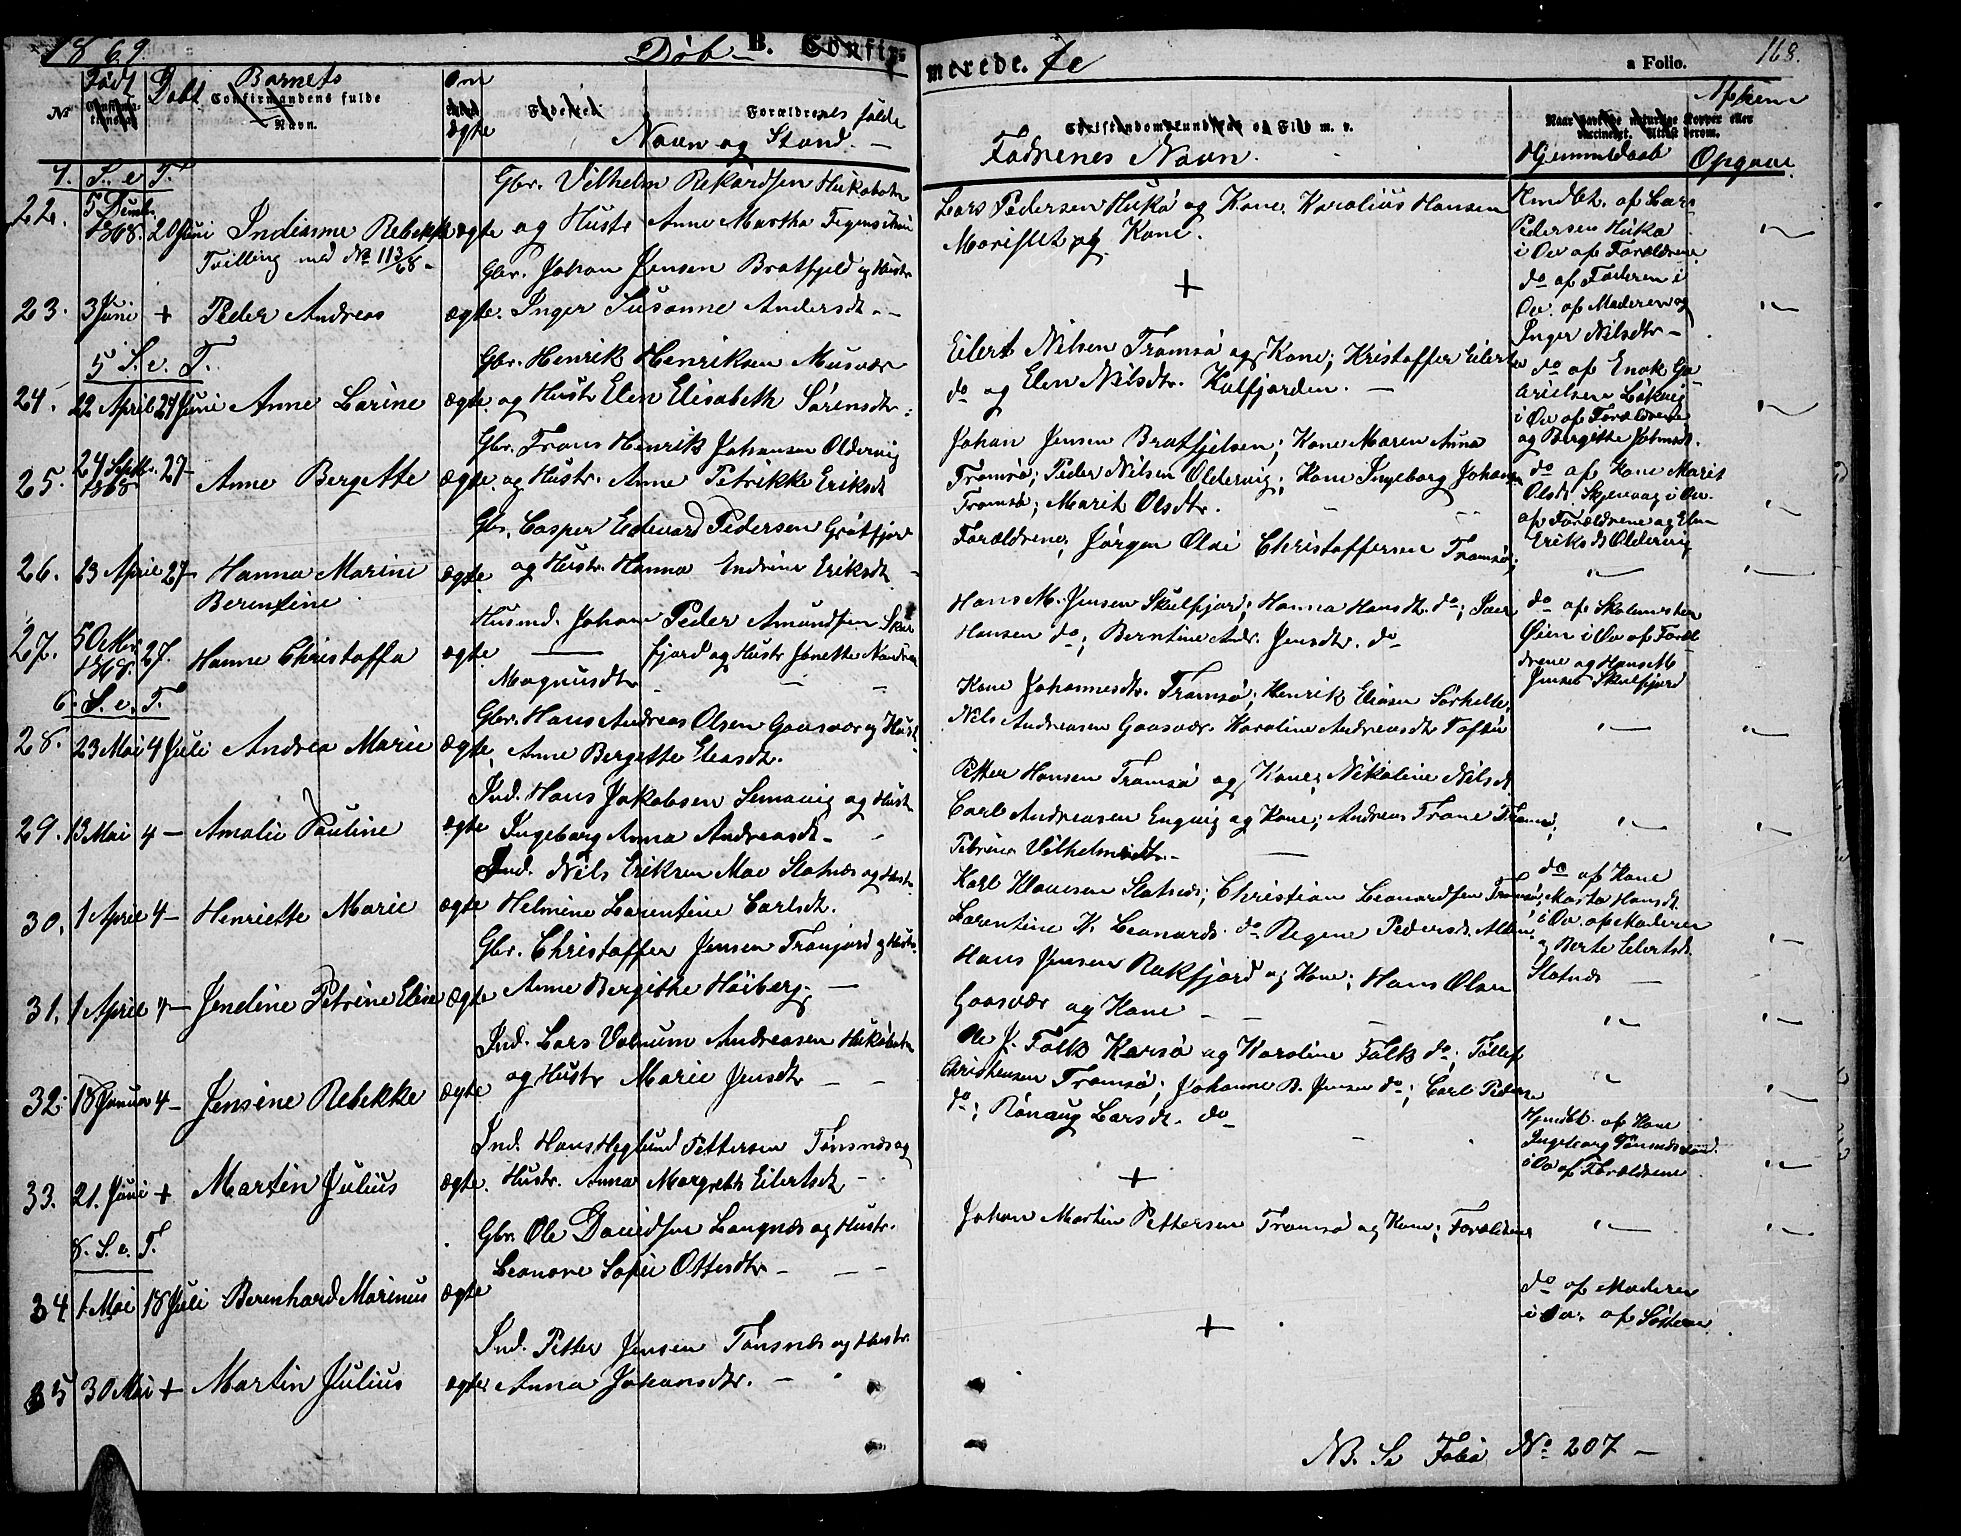 1869.
Døb- B. Confir-
merede. te
a Folio.
168.
No
Født
Døbt
Barnets
Confirmandens fulde
Navn.
Om
ægte
Fødested
Forældrenes fulde
Navn og Stand. -
Christendomskundskab og Flid m. v.
Fadrenes Navn.
Hjemmedaab
Opgave
4. S. e. T.
22. 5 Decmb. 1868. 20 Juni
Rebekke
ægte
Tvilling med No 113/68 -
Gbr. Vilhelm Rekardsen Hukøbotn
og Hustr Anne Martha
Lars Pedersen Hukø og Kone; Karolius Hansen
og Kone.
Hmdbt. af Lars
Pedersen Hukø
i Ov af Forældrene
23. 3 Juni + Peder Andreas
ægte.
Gbr. Johan Jensen Bratfjeld og Hustr
Inger Susanne Andersdt. -
+
do af Faderen i
Ov. af Moderen og
Inger Nilsdtr -
5 S. e. T.
24. 22 April 27 Juni Anne Larine
ægte.
Gbr. Henrik Henriksen Musvær
og Hustr Elen Elisabeth Sørensdtr.
Eilert Nilsen Tromsø og Kone; Kristoffer Eilertsen
do og Elen Nilsdtr. Kalfjorden. -
do af Enok
i Ov af Forældrene
og Bergitte Johnsdt.
25. 24 Septbr. 1868 27- Anne Bergette
ægte.
Gbr. Frans Henrik Johansen Oldervig
og Hustr. Anne Petrikke Eriksdt
Johan Jensen Bratfjelsen; Kone Maren Anna
Tromsø; Peder Nilsen Oldervig; Kone Ingeborg Johansen
Tromsø; Marit Olsdtr.
do af Kone Marit
Olsdt. i Ov.
af Forældrene og Elen
Eriksdt Oldervig
26. 23 April 27- Hanna Marine
Berentine
ægte
Gbr. Casper Edevard Pedersen Grøtfjord
og Hustr. Hanna Indrine Eriksdt
Forældrene; Jørgen Olai Christoffersen Tromsø;
27. 5 Oktbr. 1868. 27. Hanne Christoffa
ægte
Husmd. Johan Peder Amundsen Skul
fjord og Hustr Janette
Magnusdtr
Hans M. Jensen Skulfjord; Hanna Hansdt. do;
Hansen do; Berntine Andr. Jensdtr. do
do af Skolemester
Øien i Ov af Foræl
drene og Hans M.
Jensen Skulfjord
6. S. e. T.
28. 23 Mai 4 Juli Andrea Marie
ægte.
Gbr. Hans Andreas Olsen Gaasvær og Hustr
Anne Bergette Eleasdt.
Kone Johannesdtr. Tromsø; Henrik Eliasen Sørhella,
Nils Andreasen Gaasvær. Karoline Andreasdt.
29. 13 Mai 4 - Amalie Pauline
ægte
Ind. Hans Jakobsen og Hustr
Ingeborg Anna Andreasdt -
Petter Hansen Tromsø og Kone; Nikoline Nilsdt
Carl Andreasen Engvig og Kone; Andreas Trane Tromsø;
Petrine Vilhelmsdtr. -
30. 1 April 4 - Henriette Marie
ægte
Ind. Nils Eriksen Moe Slatnæs og Hustr.
Helmine Larentine Carlsdt.
Karl Klausen Slatnæs; Christian Leonardsen Tromsø;
Larentine K. Leonards. do Regine Pedersdt.
do af Kone
Marta Hansdt.
i Ov. af Moderen
og Berte Eilertsdt.
Slatnæs
31. 1 April 4 - Jendine Petrine Elise
ægte
Gbr. Christoffer Jensen og Hustr.
Anne Bergitke Høiberg; -
Hans Jensen Rakfjord og Kone; Hans Olsen
Gaasvær og Kone
32. 18 Januar 4 - Jensine Rebekke
ægte
Ind. Lars Andreasen Hukøbotn
og Hustr Marie Jensdtr
Ole J. Falk Karsø og Karoline Falk do; Tollef
Christensen Tromsø; Johanne B. Jensen do; Carl Pedersen
do; Rønaug Larsdt. do
33. 21. Juni + Martin Julius
ægte.
Ind. Hans Heglund Pettersen Tønsnæs og
Hustr. Anna Margreth Eilertsdt
+
Hjmdbt. af Kone
Ingeborg
i Ov af Forældrene
8. S. e. T.
34 1 Mai 18 Juli Bernhard Marinus
ægte
Gbr. Ole Davidsen Langnæs og Hustr.
Leonore Sofie Ottesdtr -
Johan Martin Pettersen Tromsø og Kone; Forældrene
35 30 Mai + Martin Julius
ægte.
Ind. Petter Jensen Tønsnæs og Hustr.
Anna Johansdtr. -
+
do af Moderen
i Ov. af
NB. Se Folio No 207 -